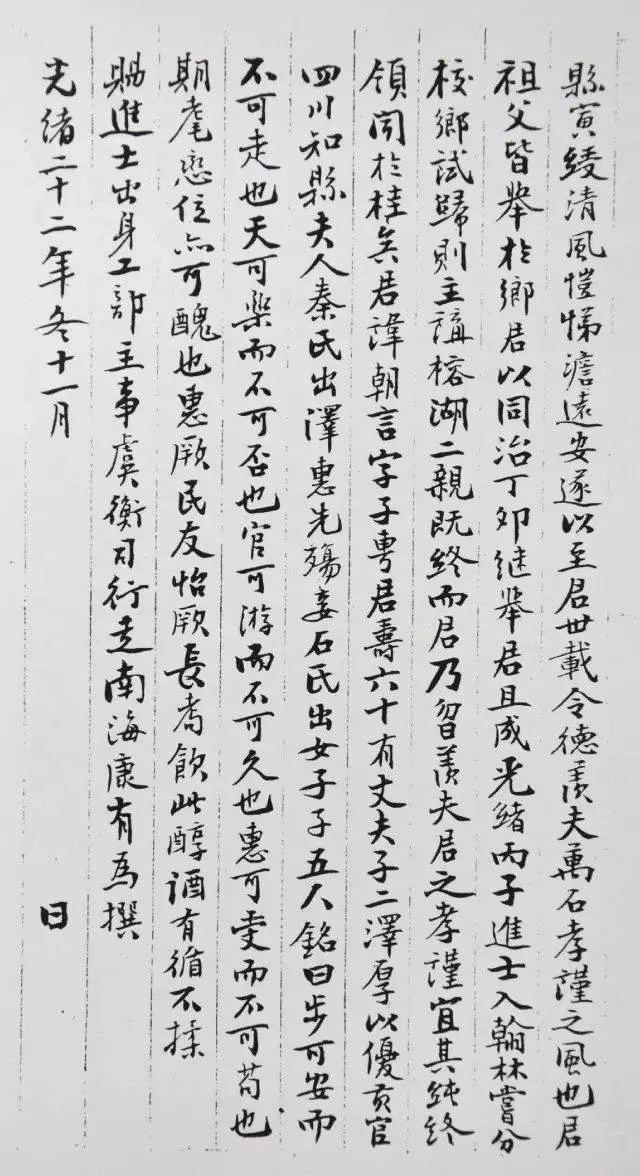 縣寅綬清風愷悌澹遠安遂以至君世載令德羨夫萬石孝謹之風也君
祖父皆舉於鄉君以同治丁卯继舉君且成光緒丙子進士入翰林嘗分
校鄉試歸則主講榕湖二親既終而君乃曶羨夫君之孝謹宜其純終
領聞於桂矣君諱朝言字子專君壽六十有丈夫子二澤厚以優貢官
四川知縣夫人秦氏出澤惠先殤妾石氏出女子子五人銘曰步可安而
不可走也天可樂而不可否也官可游而不可久也惠可受而不可苟也
期耄戀位亦可醜也惠厥民友怡厥長耉飲此醇酒有循不揉
賜進士出身工部主事虞衡司行走南海康有為撰
光緒二十二年冬十一月 日